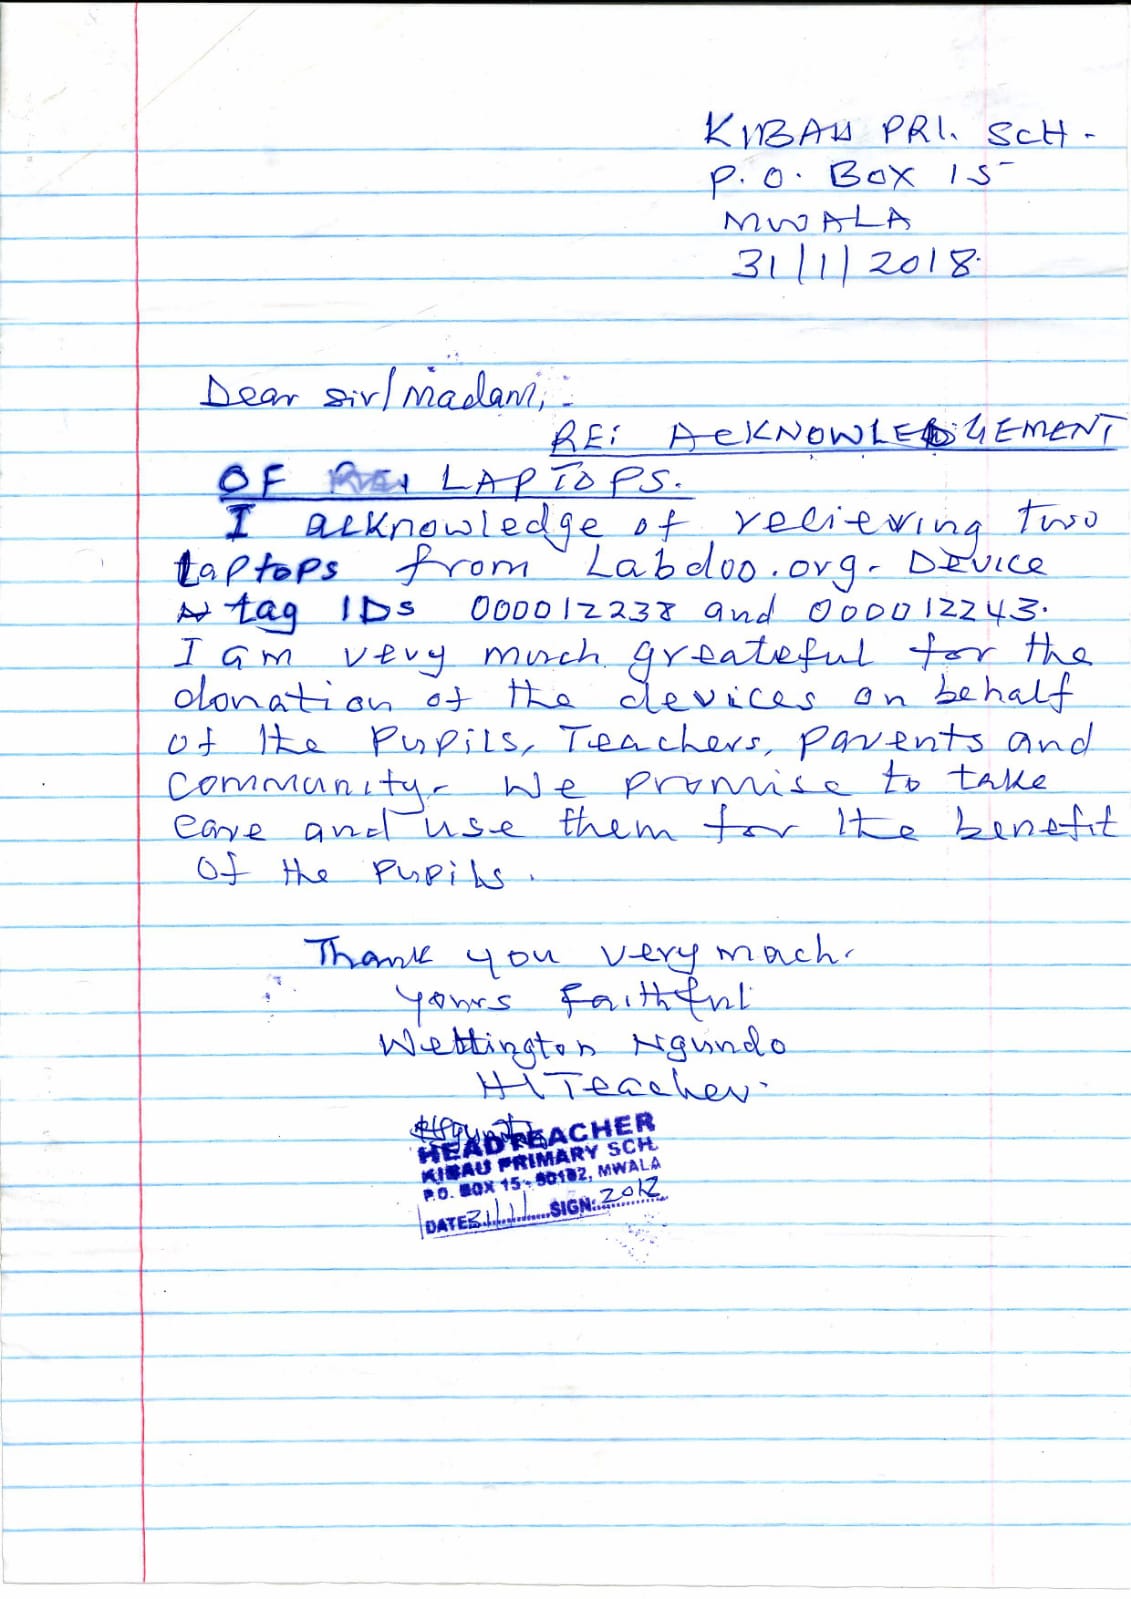 KIIBAU PRI. SCH.
P.O. BOX 15
MWALA
31/1/2018.
Dear Sir/Madam,
RE: ACKNOWLEDGEMENT
OF LAPTOPS.
I acknowledge of recieving two
Laptops from Labdoo.org. Device
tag IDs 000012238 and 000012243.
I am very much greateful for the
donation of the devices on behalf
of the Pupils, Teachers, parents and
Community. We promise to take
care and use them for the benefit
of the Pupils.
Thank you very much.
Yours Faithful
Wellington Ngundo
H/Teacher.
HEADTEACHER
KIBAU PRIMARY SCH.
P.O. BOX 15 - 90102, MWALA
DATE 31/1/ SIGN: 2018